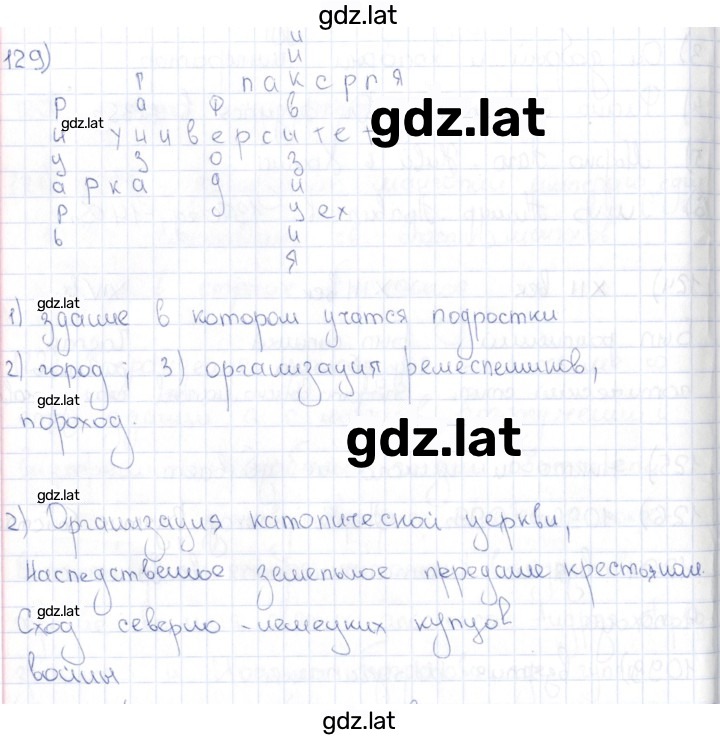 gdz.lat
129)
и
и
Г п а к с г р я
Р а Ф в
gdz.lat
gdz.lat
и у н и в е р с и т е т
у з о з
а р к а д и
р ц е х
ь и
я
gdz.lat
1) здание в котором учатся подростки
2) город; 3) организация ремеспешинов,
gdz.lat
пороход.
gdz.lat
gdz.lat
2) Организация катопической церкви,
Наспедственное земепьное передаше крестьянам
gdz.lat
Сход северно-немецких купцов
войны
gdz.lat